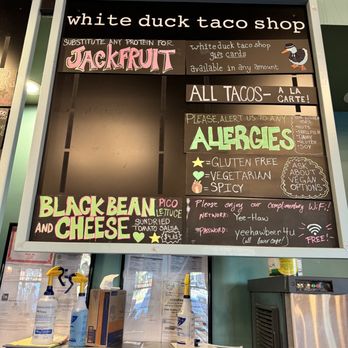 white duck taco shop
SUBSTITUTE ANY PROTEIN FOR
JACKFRUIT
white duck taco shop
gift cards
available in any amount
ALL TACOS-
A LA
CARTE!
PLEASE, ALERT US TO ANY
ALLERGIES
=GLUTEN FREE
=VEGETARIAN
=SPICY
ASK
ABOUT
VEGAN
OPTIONS
BLACK BEAN
AND CHEESE
PICO
LETTUCE
SUNDRIED
TOMATO SALSA
Please enjoy our complimentary WiFi!
NETWORK: Yee-Haw
PASSWORD: yeehawbeer4u
(all lower case!)
FREE!
white duck taco shop